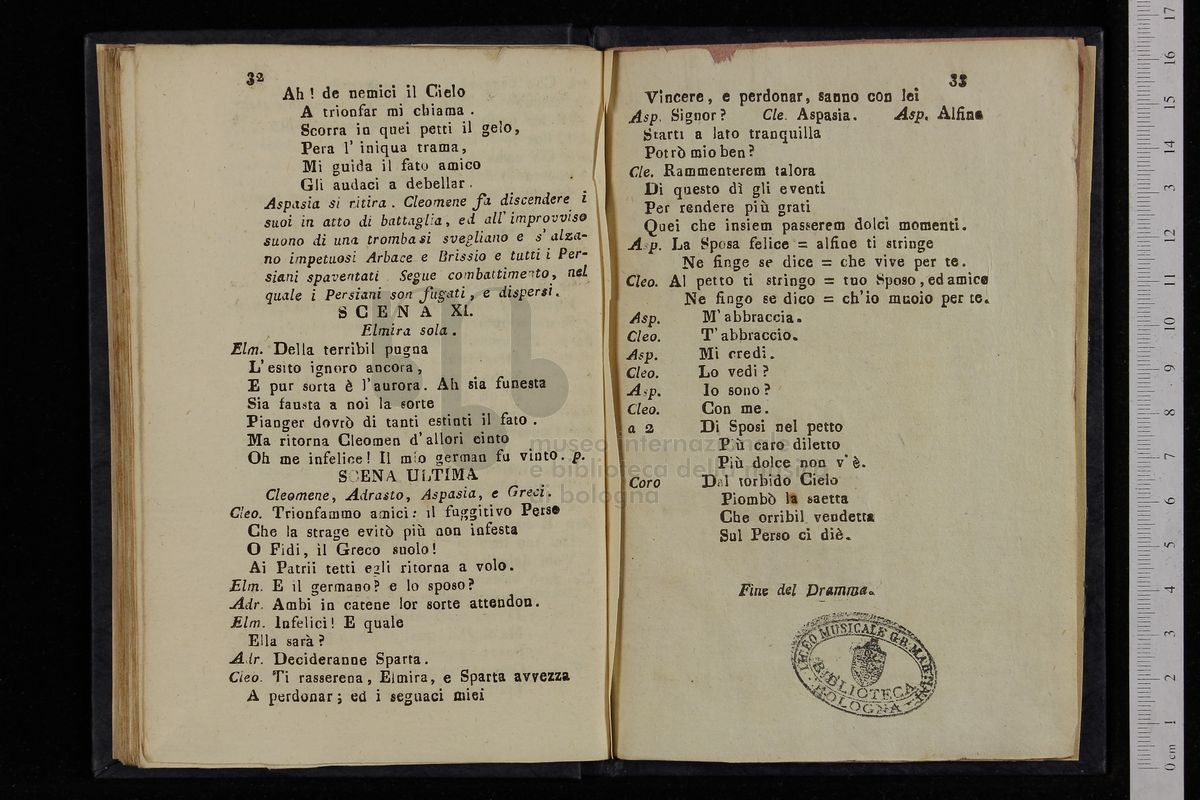 32
Ah! de nemici il Cielo
A trionfar mi chiama.
Scorra in quei petti il gelo,
Pera l'iniqua trama,
Mi guida il fato amico
Gli audaci a debellar.
Aspasia si ritira. Cleomene fa discendere i
suoi in atto di battaglia, ed all'improvviso
suono di una tromba si svegliano e s'alza-
no impetuosi Arbace e Brissio e tutti i Per-
siani spaventati. Segue combattimento, nel
quale i Persiani son fugati, e dispersi.
SCENA XI.
Elmira sola.
Elm. Della terribil pugna
L'esito ignoro ancora,
E pur sorta è l'aurora. Ah sia funesta
Sia fausta a noi la sorte
Pianger dovrò di tanti estinti il fato.
Ma ritorna Cleomen d'allori cinto
Oh me infelice! Il mio german fu vinto. p.
SCENA ULTIMA
Cleomene, Adrasto, Aspasia, e Greci.
Cleo. Trionfammo amici: il fuggitivo Perso
Che la strage evitò più non infesta
O Fidi, il Greco suolo!
Ai Patrii tetti egli ritorna a volo.
Elm. E il germano? e lo sposo?
Adr. Ambi in catene lor sorte attendon.
Elm. Infelici! E quale
Ella sarà?
Adr. Decideranne Sparta.
Cleo. Ti rasserena, Elmira, e Sparta avvezza
A perdonar; ed i seguaci miei
33
Vincere, e perdonar, sanno con lei
Asp. Signor? Cle. Aspasia. Asp. Alfine
Starti a lato tranquilla
Potrò mio ben?
Cle. Rammenterem talora
Di questo dì gli eventi
Per rendere più grati
Quei che insiem passerem dolci momenti.
Asp. La Sposa felice = alfine ti stringe
Ne finge se dice = che vive per te.
Cleo. Al petto ti stringo = tuo Sposo, ed amico
Ne fingo se dico = ch'io muoio per te.
Asp. M'abbraccia.
Cleo. T'abbraccio.
Asp. Mi credi.
Cleo. Lo vedi?
Asp. Io sono?
Cleo. Con me.
a 2 Di Sposi nel petto
Più caro diletto
Più dolce non v'è.
Coro Dal torbido Cielo
Piombò la saetta
Che orribil vendetta
Sul Perso ci diè.
Fine del Dramma.
LICEO MUSICALE G.B. MARTINI
BIBLIOTECA
BOLOGNA
museo internazionale
e biblioteca della musica
di bologna
0 cm 1 2 3 4 5 6 7 8 9 10 11 12 13 14 15 16 17